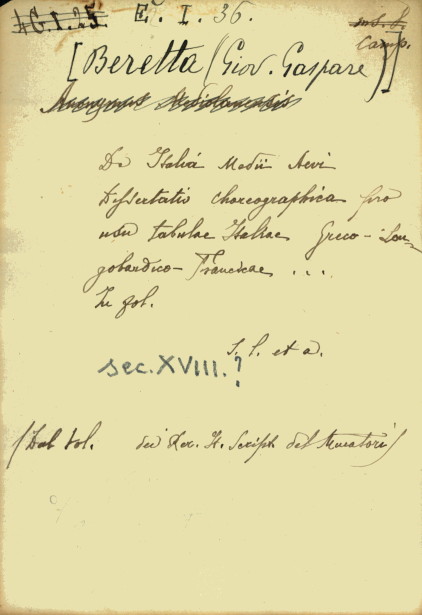 4G.I.25. E. I. 36. ms. S.
Camp.
[Beretta (Giov. Gaspare)]
Anonymus Mediolanensis
De Italia Medii Aevi
Dissertatio choreographica pro
usu tabulae Italiae Greco-Lon-
gobardico-Francicae ...
In fol.
S. l. et a.
sec. XVIII.?
(Dal vol. dei Rer. It. Script. del Muratori)